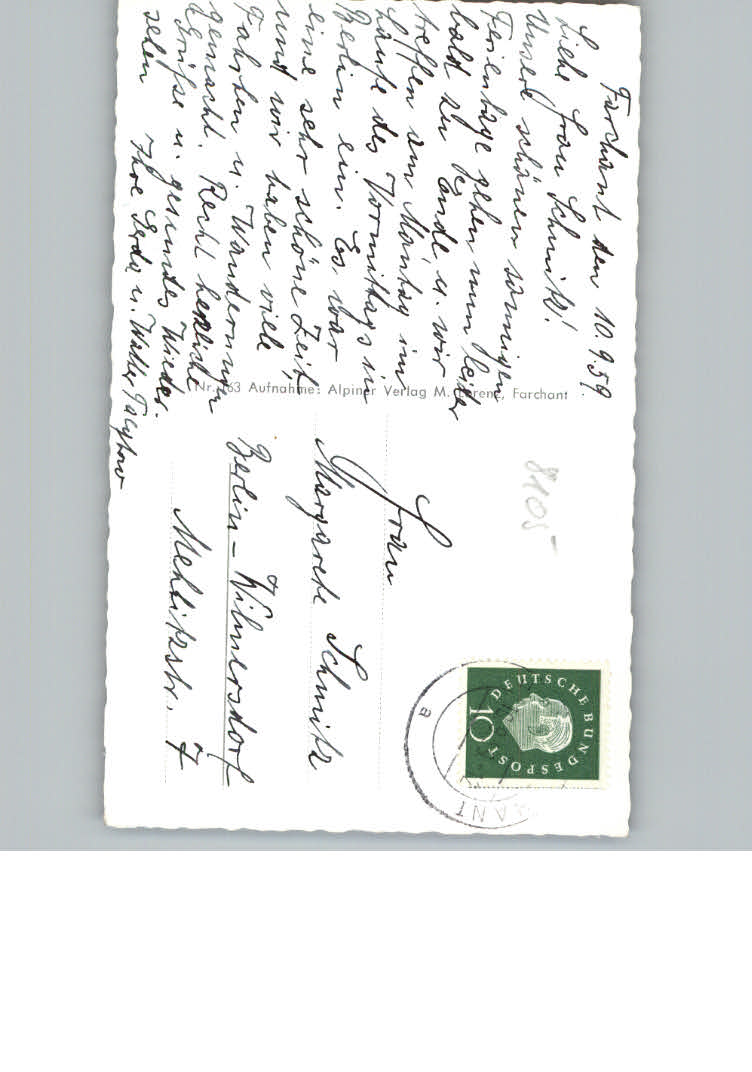 Farchant den 10.9.59
Liebe Frau Schmitz!
Unsere schönen sonnigen
Ferientage gehen nun leider
bald zu Ende u. wir
treffen am Montag im
Laufe des Vormittags in
Berlin ein. Es war
eine sehr schöne Zeit,
und wir haben viele
Fahrten u. Wanderungen
gemacht. Recht herzliche
Grüße u. gesundes Wieder-
sehen
Ihre Gerda u. Walter
Nr. 163 Aufnahme: Alpiner Verlag M. Lorenz, Farchant
8105
Frau
Margarete Schmitz
Berlin-Wilmersdorf
Mehlitzstr. 7
DEUTSCHE BUNDESPOST
10
a